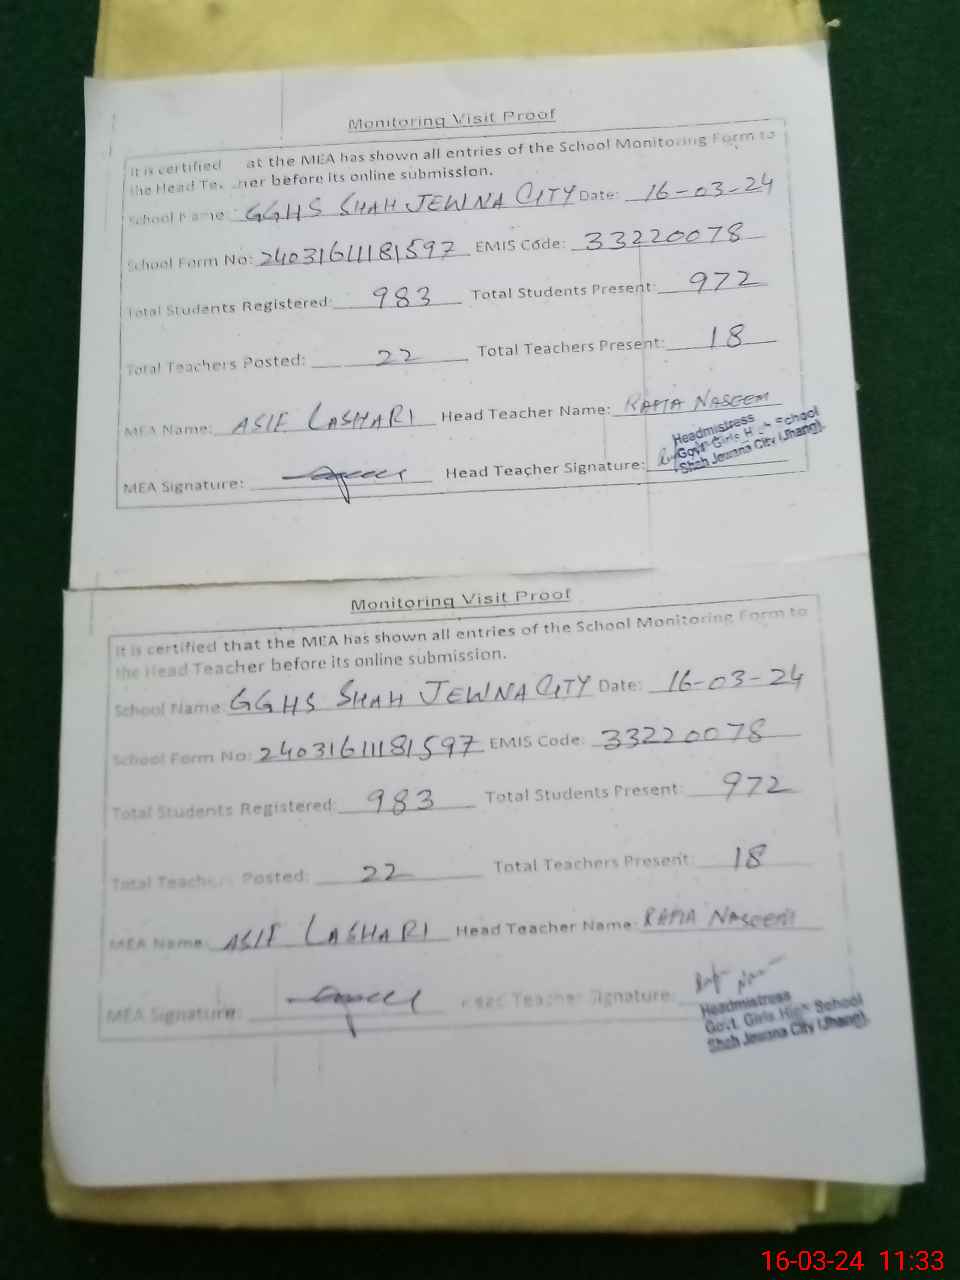 Monitoring Visit Proof
It is certified at the MEA has shown all entries of the School Monitoring Form to
the Head Teacher before its online submission.
School Name: GGHS SHAH JEWNA CITY Date: 16-03-24
School Form No: 24031611181597 EMIS Code: 33220078
Total Students Registered: 983 Total Students Present: 972
Total Teachers Posted: 22 Total Teachers Present: 18
MEA Name: ASIF LASHARI Head Teacher Name: RAFIA NASEEM
Headmistress
Govt Girls High School
Shah Jewana City (Jhang).
MEA Signature: Head Teacher Signature:
Monitoring Visit Proof
It is certified that the MEA has shown all entries of the School Monitoring Form to
the Head Teacher before its online submission.
School Name: GGHS SHAH JEWNA CITY Date: 16-03-24
School Form No: 24031611181597 EMIS Code: 33220078
Total Students Registered: 983 Total Students Present: 972
Total Teachers Posted: 22 Total Teachers Present: 18
MEA Name: ASIF LASHARI Head Teacher Name: RAFIA NASEEM
MEA Signature: Head Teacher Signature:
Headmistress
Govt. Girls High School
Shah Jewana City (Jhang).
16-03-24 11:33